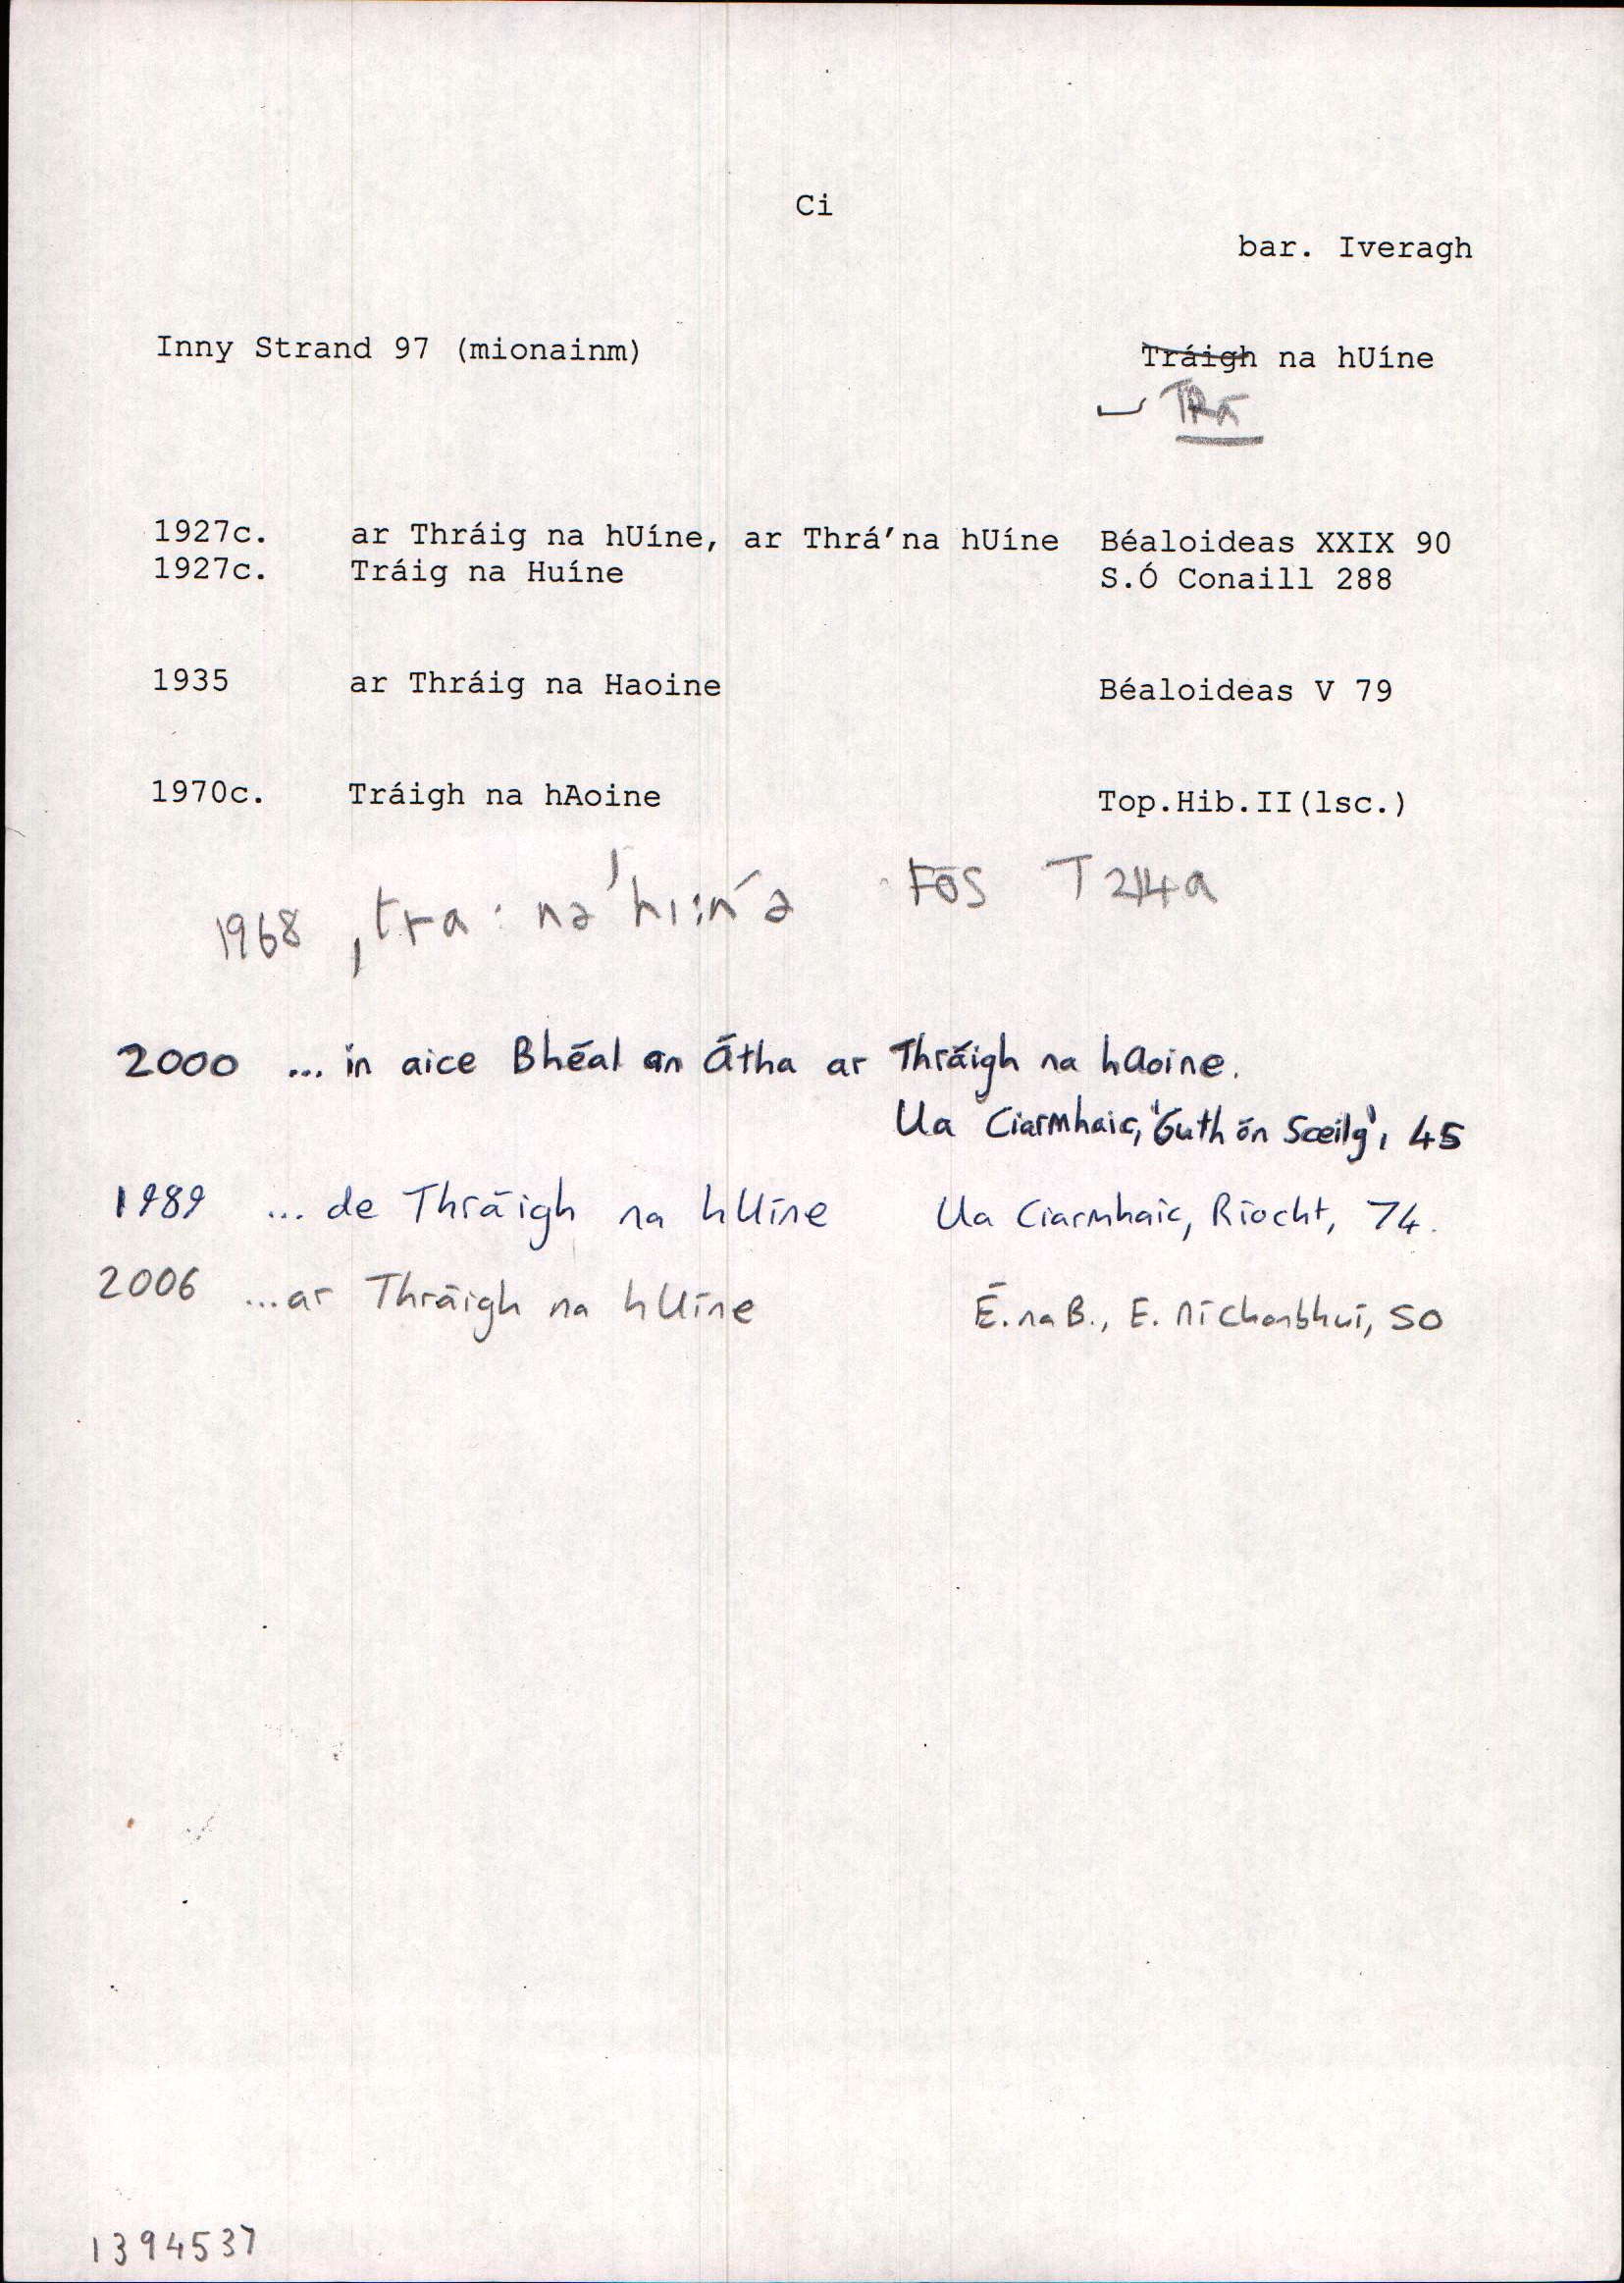 Ci
bar. Iveragh
Inny Strand 97 (mionainm) Tráigh na hUíne
TRÁ
1927c. ar Thráig na hUíne, ar Thrá'na hUíne Béaloideas XXIX 90
1927c. Tráig na Huíne S.Ó Conaill 288
1935 ar Thráig na Haoine Béaloideas V 79
1970c. Tráigh na hAoine Top.Hib.II(lsc.)
1968 ˌtra: nə ˈhi:n´ə FÓS T214a
2000 ... in aice Bhéal an Átha ar Thráigh na hAoine.
Ua Ciarmhaic, 'Guth ón Sceilg', 45
1989 ... de Thráigh na hUíne Ua Ciarmhaic, Ríocht, 74.
2006 ...ar Thráigh na hUíne É. na B., E. Ní Chonbhuí, 50
1394537